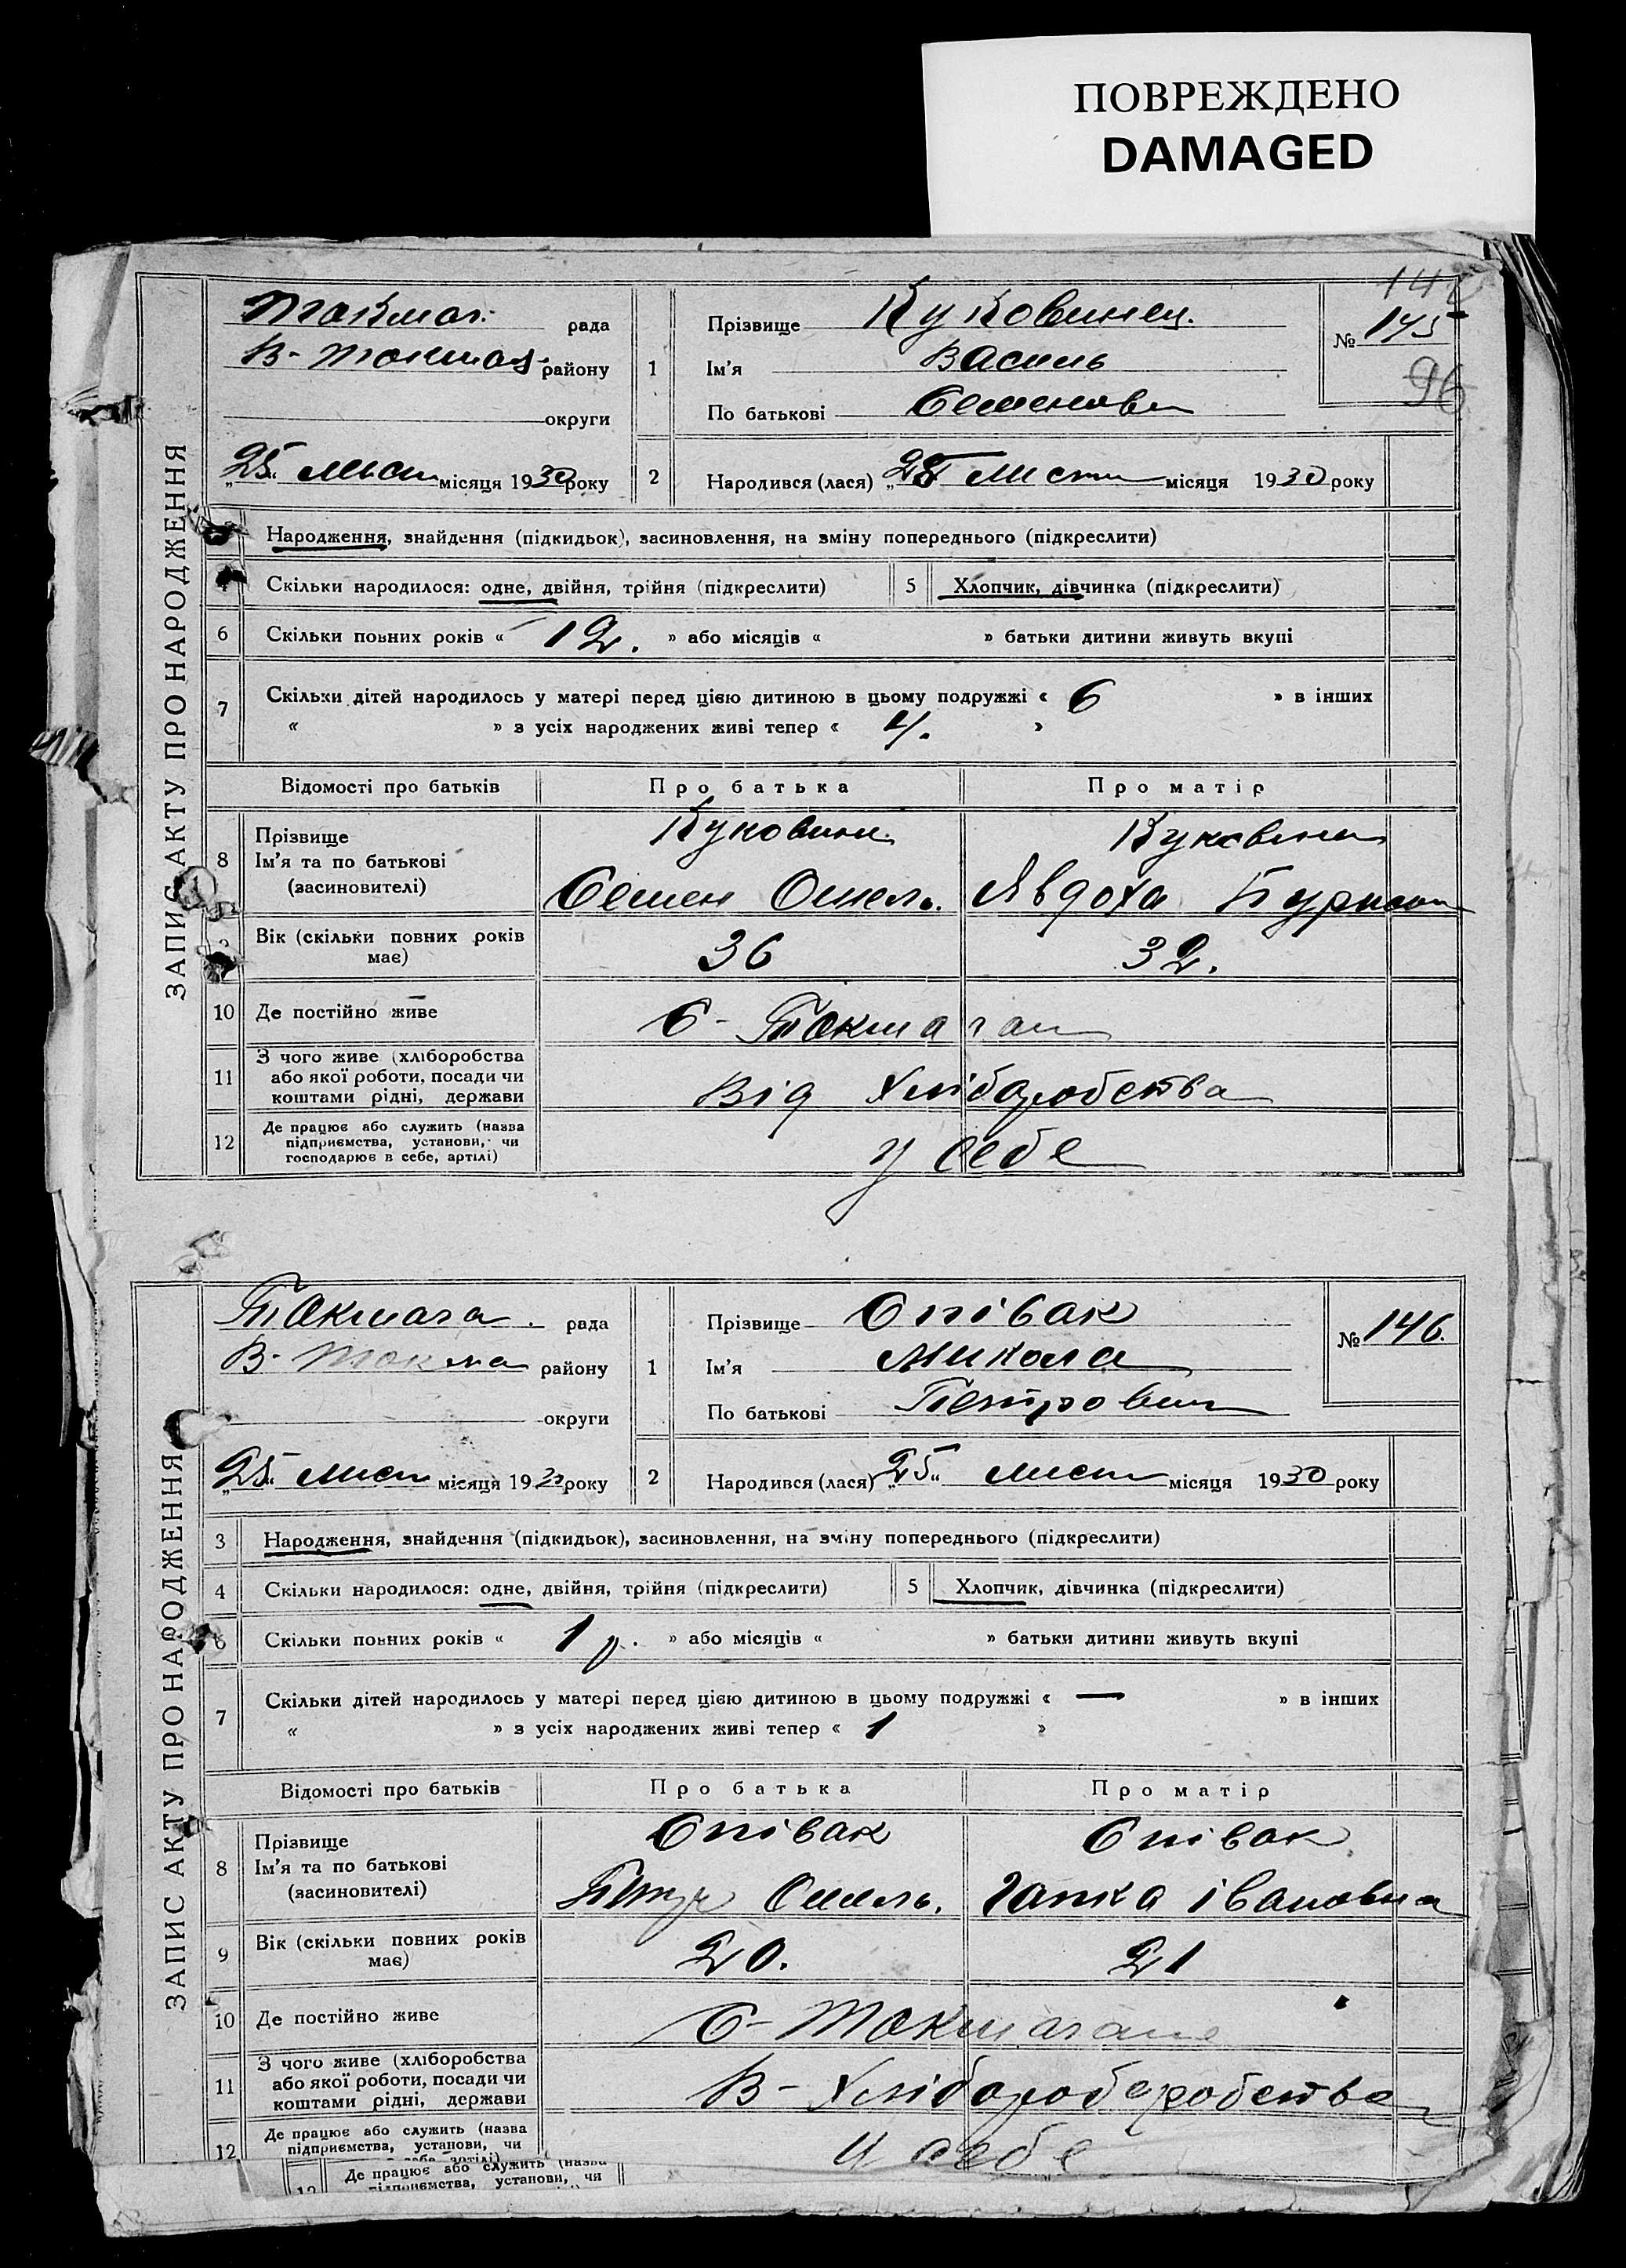 ПОВРЕЖДЕНО
DAMAGED
ЗАПИС АКТУ ПРО НАРОДЖЕННЯ
Токмач. рада
В- Токмач. району
округи
„25„ лист місяця 1930 року
1 Прізвище Куковинец.
Ім'я Василь
По батькові Семенови
№ 145
96
2 Народився (лася) „ лист місяця 1930 року
Народження, знайдення (підкидьок), засиновлення, на зміну попереднього (підкреслити)
4 Скільки народилося: одне, двійня, трійня (підкреслити) 5 Хлопчик, дівчинка (підкреслити)
6 Скільки повних років « 12. » або місяців « » батьки дитини живуть вкупі
7 Скільки дітей народилось у матері перед цією дитиною в цьому подружжі « 6 » в інших
« » з усіх народжених живі тепер « 4. »
Відомості про батьків Про батька Про матір
8 Прізвище Куковин. Куковин
Ім'я та по батькові
(засиновителі) Семен Омель. Явдоха
Вік (скільки повних років має) 36 32.
10 Де постійно живе с- Токмач
11 З чого живе (хліборобства або якої роботи, посади чи коштами рідні, держави Від хліборобства
12 Де працює або служить (назва підприємства, установи, чи господарює в себе, артілі) у себе
ЗАПИС АКТУ ПРО НАРОДЖЕННЯ
рада
В- Токма району
округи
„25„ лист місяця 1930 року
1 Прізвище Співак
Ім'я Микола
По батькові Петрович
№ 146.
2 Народився (лася) „25„ лист місяця 1930 року
3 Народження, знайдення (підкидьок), засиновлення, на зміну попереднього (підкреслити)
4 Скільки народилося: одне, двійня, трійня (підкреслити) 5 Хлопчик, дівчинка (підкреслити)
6 Скільки повних років « 1 р. » або місяців « » батьки дитини живуть вкупі
7 Скільки дітей народилось у матері перед цією дитиною в цьому подружжі « — » в інших
« » з усіх народжених живі тепер « 1 »
Відомості про батьків Про батька Про матір
8 Прізвище Співак Співак
Ім'я та по батькові
(засиновителі) Петр Омель. Гапка Івановна
9 Вік (скільки повних років має) 20. 21
10 Де постійно живе с-
11 З чого живе (хліборобства або якої роботи, посади чи коштами рідні, держави В-
12 Де працює або служить (назва підприємства, установи, чи у себе
12 Де працює або служить (назва
підприємства, установи, чи